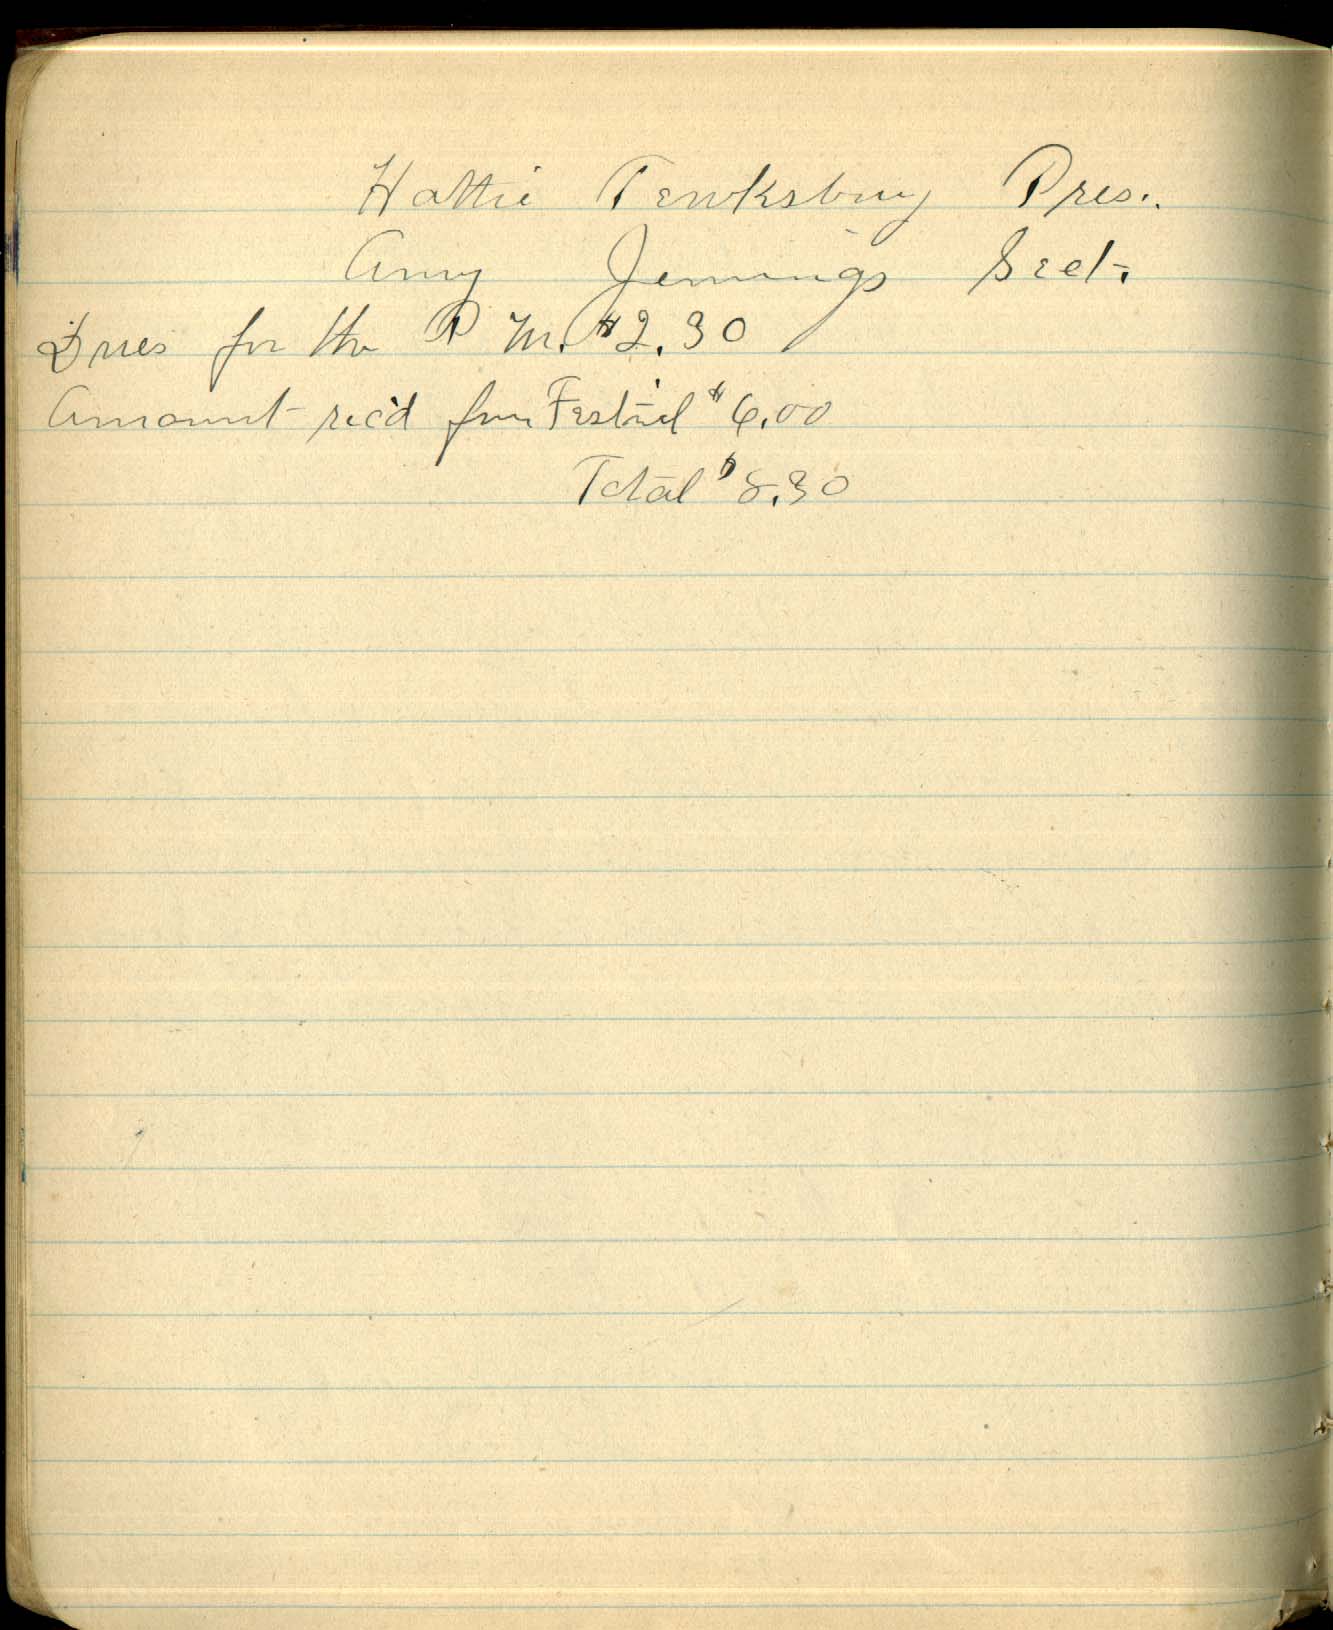 Hattie Tewksbury Pres.
Amy Jennings Sect.
Dues for the P M. $2.30
Amount rec'd from Festival $6.00
Total $8.30